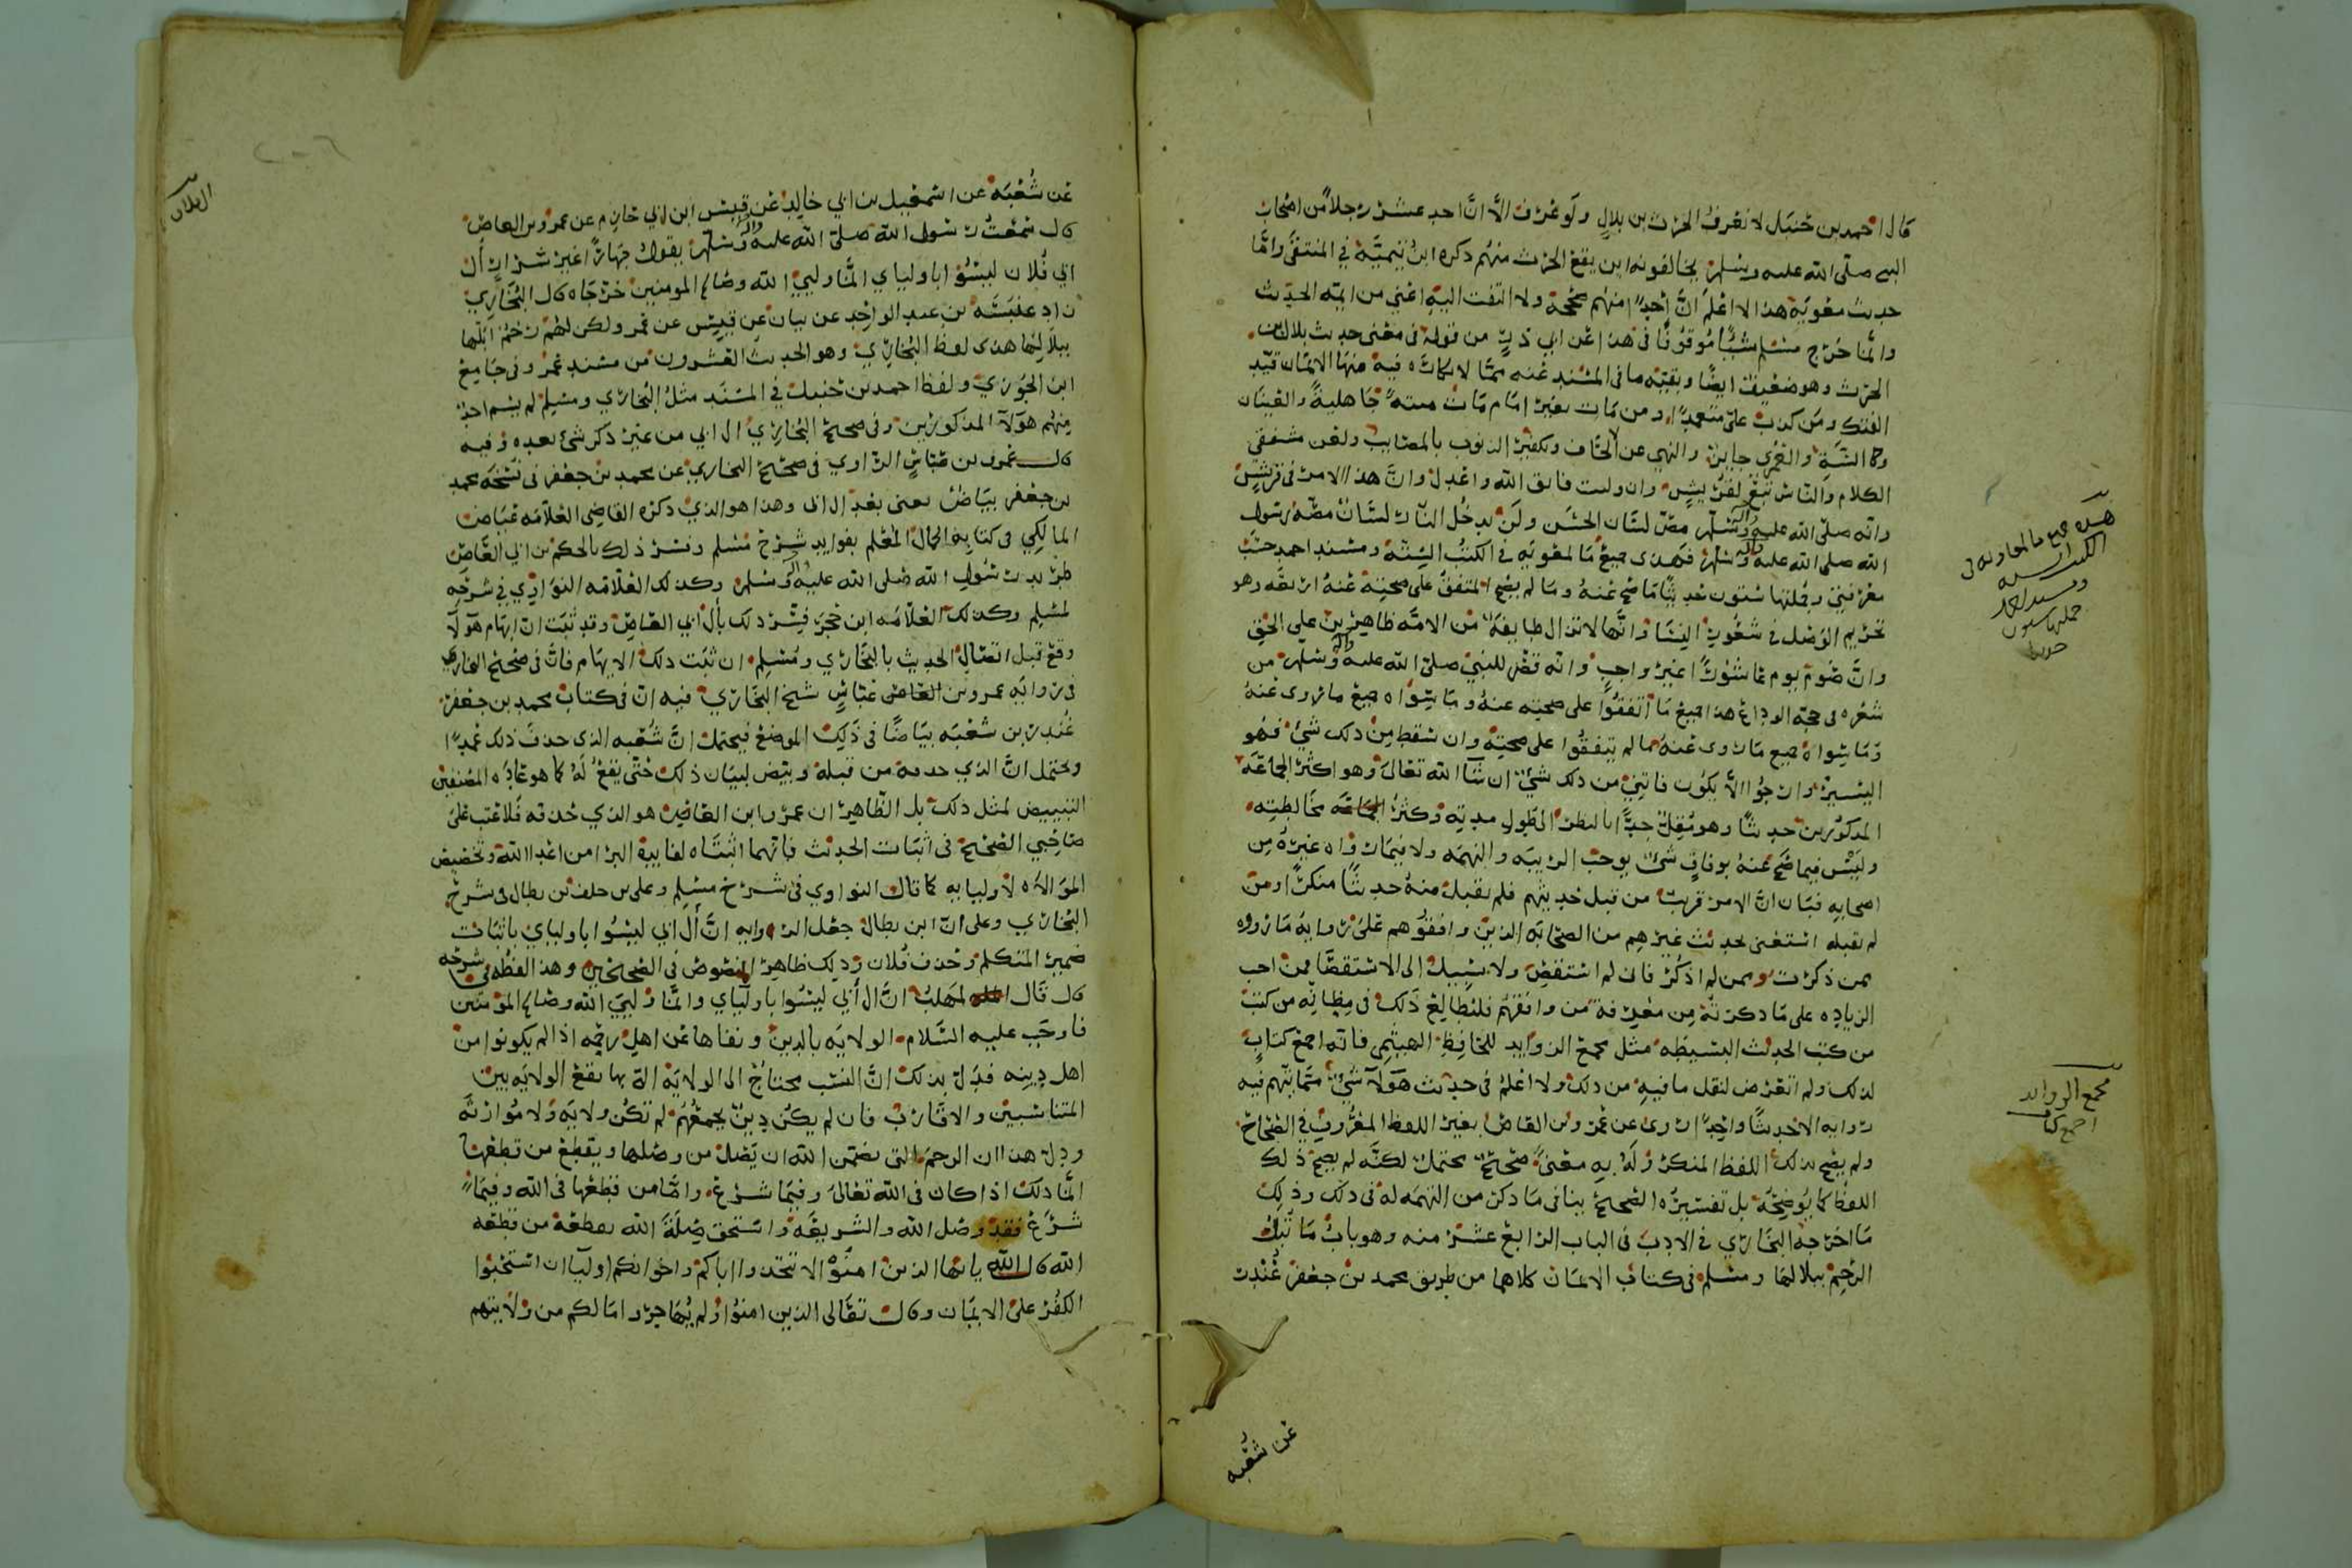 قال احمد بن حنبل لا نعرف الحرث بن بلال ولو عرف الا ان احد عشر رجلا من اصحاب
النبي صلى الله عليه وسلم يخالفونه اين يقع الحرث منهم ذكره ابن تيمية في المنتقى واما
حديث معوية هذا لا اعلم ان احدا منهم صححه ولا التفت اليه اعني من ايمة الحديث
وانما خرج مسلم موقوفا في هذا عن ابي ذر من قوله في معنى حديث بلال بن
الحرث وهو ضعيف ايضا وبقيته ما في المسند عنه مما لا نكاره فيه منها الايمان قيد
الفتك ومن كذب علي متعمدا ومن مات بغير امام مات ميتة جاهلية والعينان
وكا السه والعمرى جايزة والنهي عن وتكفير الذنوب بالمصايب ولعن مشققي
الكلام والناس تبع لقريش وان وليت فاتق الله واعدل وان هذا الامر في قريش
وانه صلى الله عليه وآله وسلم مص لسان الحسن ولن يدخل النار لسان مصه رسول
الله صلى الله عليه وآله وسلم فهذى جميع ما لمعوية في الكتب الستة ومسند احمد حسب
معرفتي وجملتها ستون حديثا ما صح عنه وما لم يصح المتفق على صحته عنه اربعة وهو
تحريم الوصل في شعور النسا وانها لا تزال طايفة من الامة ظاهرين على الحق
وان صوم يوم عاشورا غير واجب وانه قصر للنبي صلى الله عليه وآله وسلم من
شعره في حجة الوداع هذا جميع ما اتفقوا على صحته عنه وما سواه جميع ما روى عنه
وما سواه جميع ما روى عنه مما لم يتفقوا على صحته وان سقط من ذلك شيء فهو
اليسير وارجوا الا يكون فاتني من ذلك شيء ان شا الله تعالى وهو اكثر الجماعة
المذكورين حديثا وهو مقل جدا بالنظر الى طول مدته وكثرة مخالطته
وليس فيما صح عنه بوفاق شيء يوجب الريبة والتهمة ولا فيما رواه غيره من
اصحابه فبان ان الامر قريب من قبل حديثهم فلم يقبل منه حديثا منكرا ومن
لم يقبله استغنى بحديث غيرهم من الصحابة الذين وافقوهم على رواية ما رووه
ممن ذكرت وممن لم اذكر فان لم استقص ولا سبيل الى الاستقصا فمن احب
الزيادة على ما ذكرته من معرفة من وافقهم فليطالع ذلك في مظانه من كتب
من كتب الحديث البسيطة مثل مجمع الزوايد للحافظ الهيثمي فانه اجمع كتاب
لذلك ولم اتعرض لنقل ما فيه من ذلك ولا اعلم في حديث هولا شي مما يتهم فيه
رواته الا حديثا واحدا روى عن عمرو بن العاص بغير اللفظ المعروف في الصحاح
ولم يصح ذلك اللفظ المنكر وله به معنى صحيح محتمل لكنه لم يصح ذلك
اللفظ كما يوضحه بل تفسيره الصحيح ينافي ما ذكر من التهمة له في ذلك وذلك
ما اخرجه البخاري في الادب في الباب الرابع عشر منه وهو باب ما تبل
الرحم ببلالها ومسلم في كتاب الايمان كلاهما من طريق محمد بن جعفر غندر
عن شعبه
هذه جميع ما لمعاويه في
الكتب السته
ومسند احمد
جملتها ستون
حديثا
مجمع الزوائد
اجمع كتاب
عن شعبة عن اسمعيل بن ابي خالد عن قيس ابن ابي حازم عن عمرو بن العاص
قال سمعت رسول الله صلى الله عليه وآله وسلم يقول جهارا غير سر ان آل
ابي فلان ليسوا باوليائي انما وليي الله وصالح المومنين خرجاه قال البخاري
زاد عنبسة بن عبد الواحد عن بيان عن قيس عن عمرو ولكن لهم رحم ابلها
ببلالها هذى لفظ البخاري وهو الحديث العشرون من مسند عمرو في جامع
ابن الجوزي ولفظ احمد بن حنبل في المسند مثل البخاري ومسلم لم يسم احد
منهم هولا المذكورين وفي صحيح البخاري ال ابي من غير ذكر شي بعده وفيه
قال عمرو بن عباس الراوي في صحيح البخاري عن محمد بن جعفر في نسخة محمد
بن جعفر بياض يعني بعد ال ابي وهذا هو الذي ذكره القاضي العلامة عياض
المالكي في كتابه اكمال المعلم بفوايد شرح مسلم وفسر ذلك بالحكم بن ابي العاص
طريد رسول الله صلى الله عليه وآله وسلم وكذلك العلامه النواوي في شرحه
لمسلم وكذلك العلامه ابن حجر فسر ذلك بآل ابي العاص وقد ثبت ان ابهام هولا
وقع قبل اتصال الحديث بالبخاري ومسلم ان ثبت ذلك الابهام فان في صحيح البخاري
في رواية عمرو بن عباس شيخ البخاري فيه ان في كتاب محمد بن جعفر
غندر بن شعبه بياضا في ذلك الموضع فيحتمل ان شعبه الذي حذف ذلك عمدا
ويحتمل ان الذي حذفه من قبله وبيض لبيان ذلك حتى يقع له كما هو عادة المصنفين
التبييض لمثل ذلك بل الظاهر ان عمرو ابن العاص هو الذي حذفه فلا عتب على
صاحبي الصحيح في اثبات الحديث فانهما اثبتاه لفايدة البرا من اعدا الله وتخصيص
الموالاه لاوليايه كما قال النواوي في شرح مسلم وعلي بن خلف بن بطال في شرح
البخاري وعلى ان ابن بطال جعل الروايه ان آل ابي ليسوا باوليايي باثبات
ضمير المتكلم وحذف فلان وذلك ظاهر المنصوص في الصحيحين وهذا لفظه في شرحه
قال قال المهلب ان ال ابي ليسوا باوليائي وانما وليي الله وصالح المومنين
فاوجب عليه السلام الولاية بالدين ونفاها عن اهل رحمه اذا لم يكونوا من
اهل دينه فدل بذلك ان النسب يحتاج الى الولاية التي بها تقع الولاية بين
المتناسبين والاقارب فان لم يكن دين يجمعهم لم تكن ولاية ولا موارثة
ودل هذا ان الرحم التي تضمن الله ان يصل من وصلها ويقطع من قطعها
انما ذلك اذا كان في الله تعالى وفيما شرع واما من قطعها في الله وفيما
شرع فقد وصل الله والشريعة واستحق صلة الله بقطعه من قطعه
الله قال الله يا ايها الذين امنوا لا تتخذوا اباكم واخوانكم اوليآ ان استحبوا
الكفر على الايمان وقال تعالى الذين امنوا ولم يهاجروا ما لكم من ولايتهم